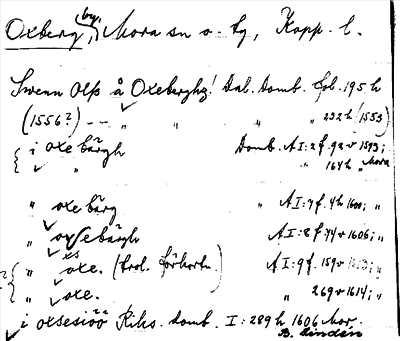 Oxberg, by, Mora sn o. tg, Kopp. l.
Swenn Olß å Oxeberghz! Dal. Domb. fol. 195 h
(1556?) -- " " " " 232 h (1553)
i oxe bärgh Domb. A I:2 f. 92 v 1593;
" " " 164 h " Mora
" oxe bärg " A I:7 f. 4 h 1600; "
" oxsebärgh A I:8 f 44 v 1606; "
" oxe. (trol. förkortn.) A I:9 f. 159 v "
" oxe. " 269 v 1614; "
i oxsesiöö Riks. domb. I: 289 h 1606 Mor.
B. Lindén